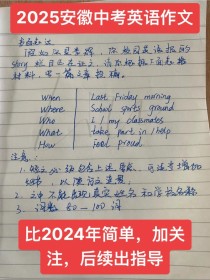 2025安徽中考英语作文
书面表达
假如你是李辉，你校英语报的
story 栏目正在征文，请你根据上面表格
材料，写一篇文章投稿。
When Last Friday morning
Where School sports ground
Who I / my classmates
What take part in / help
How Feel proud
注意：
1. 短文必须包含上述要点，可适当增加
细节，以使行文连贯；
2. 文中不能出现真实姓名和学校名称
3. 词数 80—100词
比2024年简单，加关
注，后续出指导